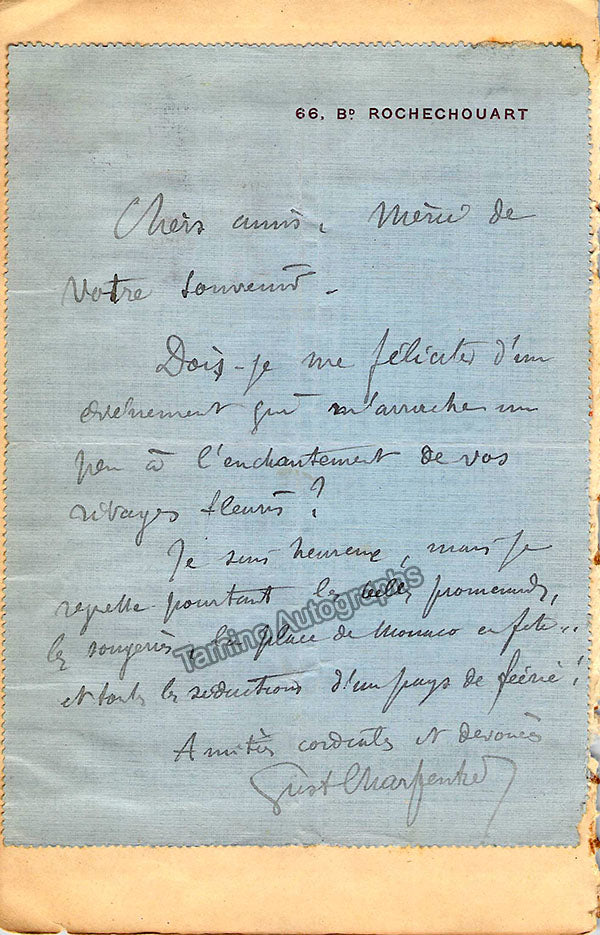 66, BD ROCHECHOUART
Chers amis. Merci de
votre souvenir.
Dois-je me féliciter d'un
événement qui m'arrache un
peu à l'enchantement de vos
rivages fleuris?
Je suis heureux, mais je
regrette pourtant les belles promenades,
les songeries, la place de Monaco en fête...
et toutes les séductions d'un pays de féerie!
Amitiés cordiales et dévouées
Gust Charpentier
Tamino Autographs